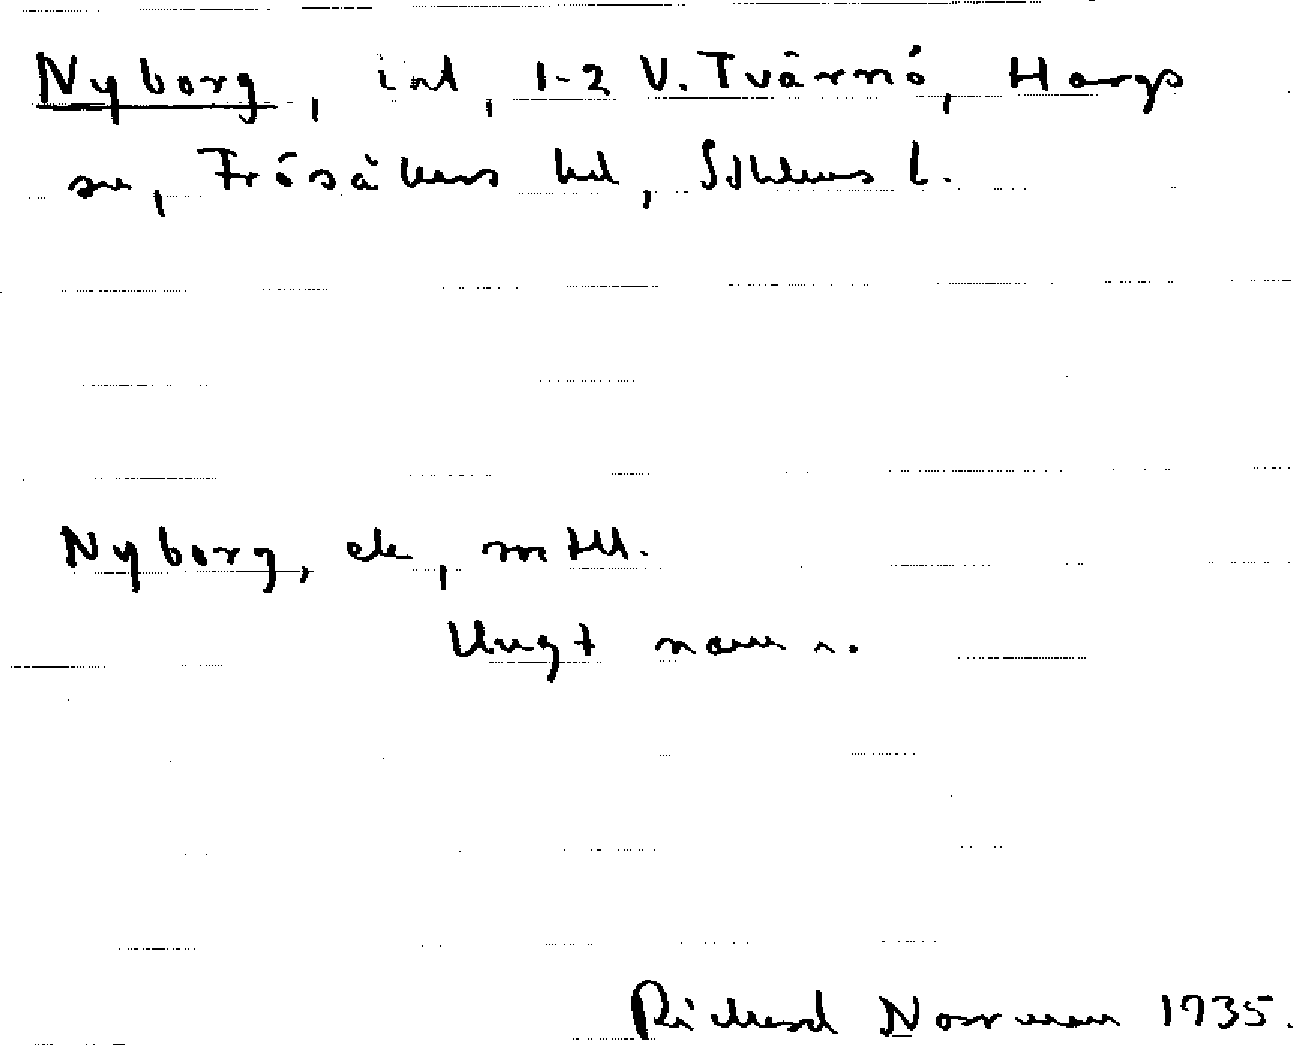 Nyborg, int, 1-2 V. Tvärnö, Hargs
sn, Frösåkers hd, Sthlms l.
Nyborg, ek, m till.
Ungt namn.
Richard Norrman 1935.